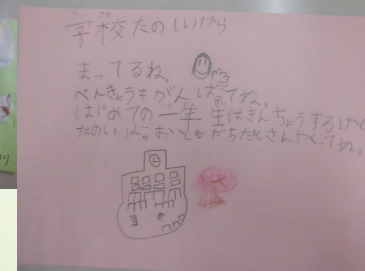 学校たのしいから
まってるね。
べんきょうもがんばってね。
はじめての一年生はきんちょうするけど
たのしいよ。おともだちたくさんつくってね。